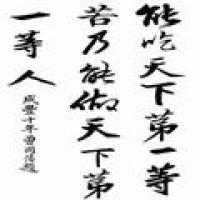 能吃天下第一等
苦乃能做天下第
一等人
咸豐十年曾国藩題